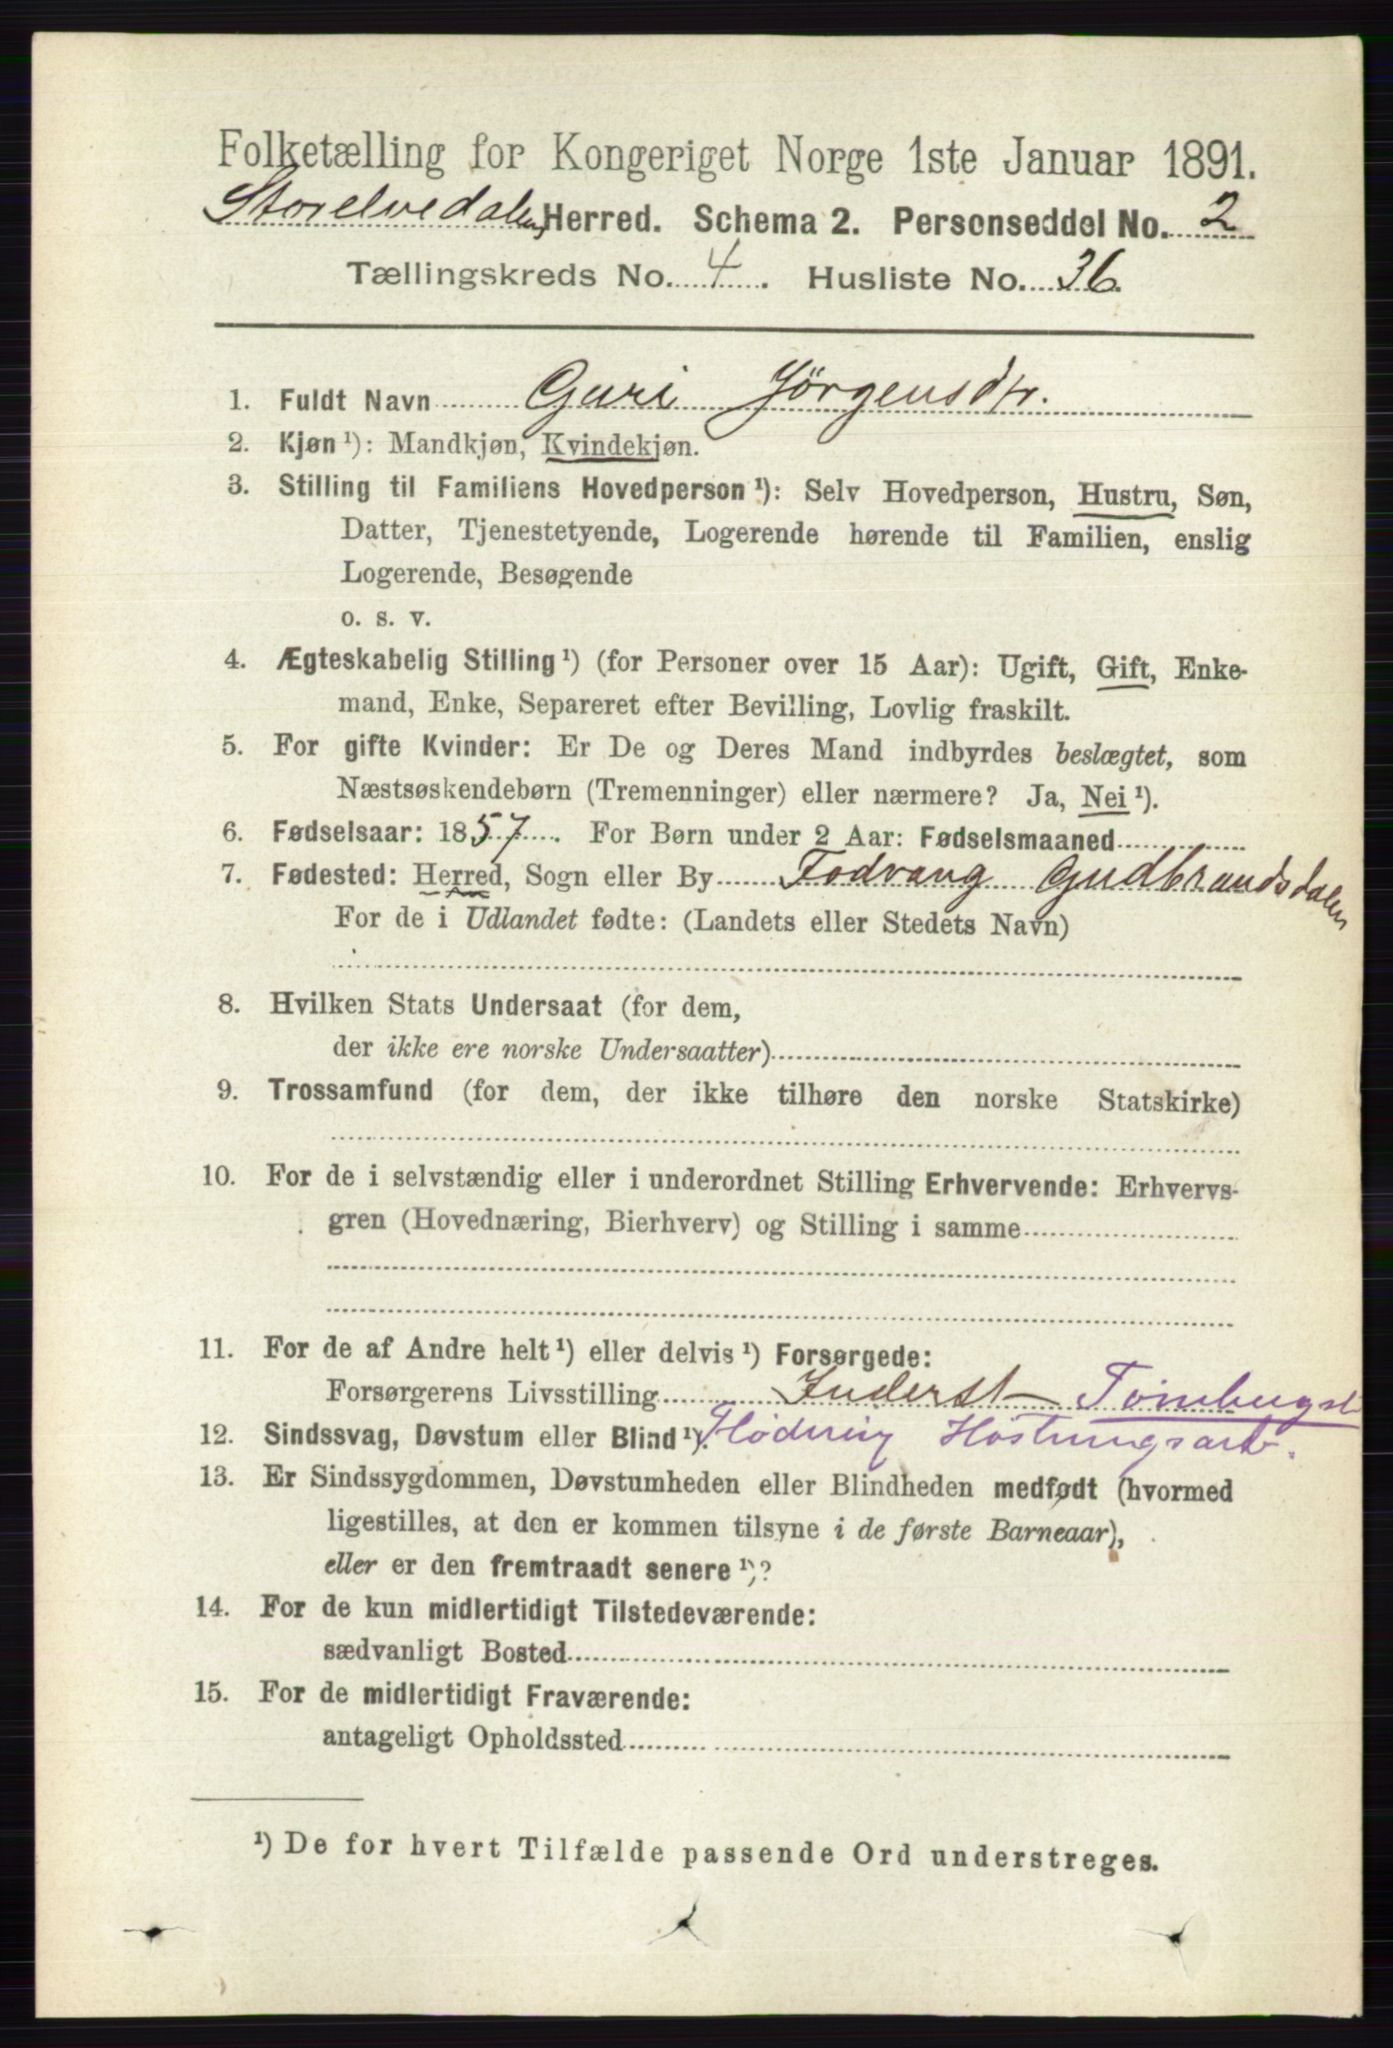 Folketælling for Kongeriget Norge 1ste Januar 1891.
Storelvedalen Herred. Schema 2. Personseddel No. 2
Tællingskreds No. 4. Husliste No. 36.
1. Fuldt Navn Guri Jörgensdtr.
2. Kjøn ¹): Mandkjøn, Kvindekjøn.
3. Stilling til Familiens Hovedperson ¹): Selv Hovedperson, Hustru, Søn,
Datter, Tjenestetyende, Logerende hørende til Familien, enslig
Logerende, Besøgende
o. s. v.
4. Ægteskabelig Stilling ¹) (for Personer over 15 Aar): Ugift, Gift, Enke-
mand, Enke, Separeret efter Bevilling, Lovlig fraskilt.
5. For gifte Kvinder: Er De og Deres Mand indbyrdes beslægtet, som
Næstsøskendebørn (Tremenninger) eller nærmere? Ja, Nei ¹).
6. Fødselsaar: 1857. For Børn under 2 Aar: Fødselsmaaned
7. Fødested: Herred, Sogn eller By Fodvang Gudbrandsdalen
For de i Udlandet fødte: (Landets eller Stedets Navn)
8. Hvilken Stats Undersaat (for dem,
der ikke ere norske Undersaatter)
9. Trossamfund (for dem, der ikke tilhøre den norske Statskirke)
10. For de i selvstændig eller i underordnet Stilling Erhvervende: Erhvervs-
gren (Hovednæring, Bierhverv) og Stilling i samme
11. For de af Andre helt ¹) eller delvis ¹) Forsørgede:
Forsørgerens Livsstilling Inderst
12. Sindssvag, Døvstum eller Blind ¹). Flødning
13. Er Sindssygdommen, Døvstumheden eller Blindheden medfødt (hvormed
ligestilles, at den er kommen tilsyne i de første Barneaar),
eller er den fremtraadt senere ¹)?
14. For de kun midlertidigt Tilstedeværende:
sædvanligt Bosted
15. For de midlertidigt Fraværende:
antageligt Opholdssted
¹) De for hvert Tilfælde passende Ord understreges.